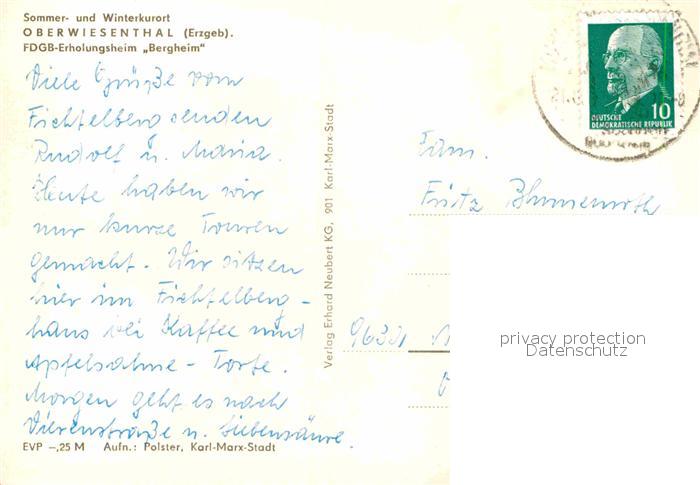 Sommer- und Winterkurort
OBERWIESENTHAL (Erzgeb).
FDGB-Erholungsheim „Bergheim"
Viele Grüße vom
Fichtelberg senden
Rudolf u. Maria.
Heute haben wir
nur kurze Touren
gemacht. Wir sitzen
hier im Fichtelberg-
haus bei Kaffee und
Apfelsahne-Torte.
Morgen geht es nach
u.
EVP –,25 M Aufn.: Polster, Karl-Marx-Stadt
Verlag Erhard Neubert KG, 901 Karl-Marx-Stadt
10
DEUTSCHE
DEMOKRATISCHE REPUBLIK
Fam.
Fritz Blumenroth
privacy protection
Datenschutz